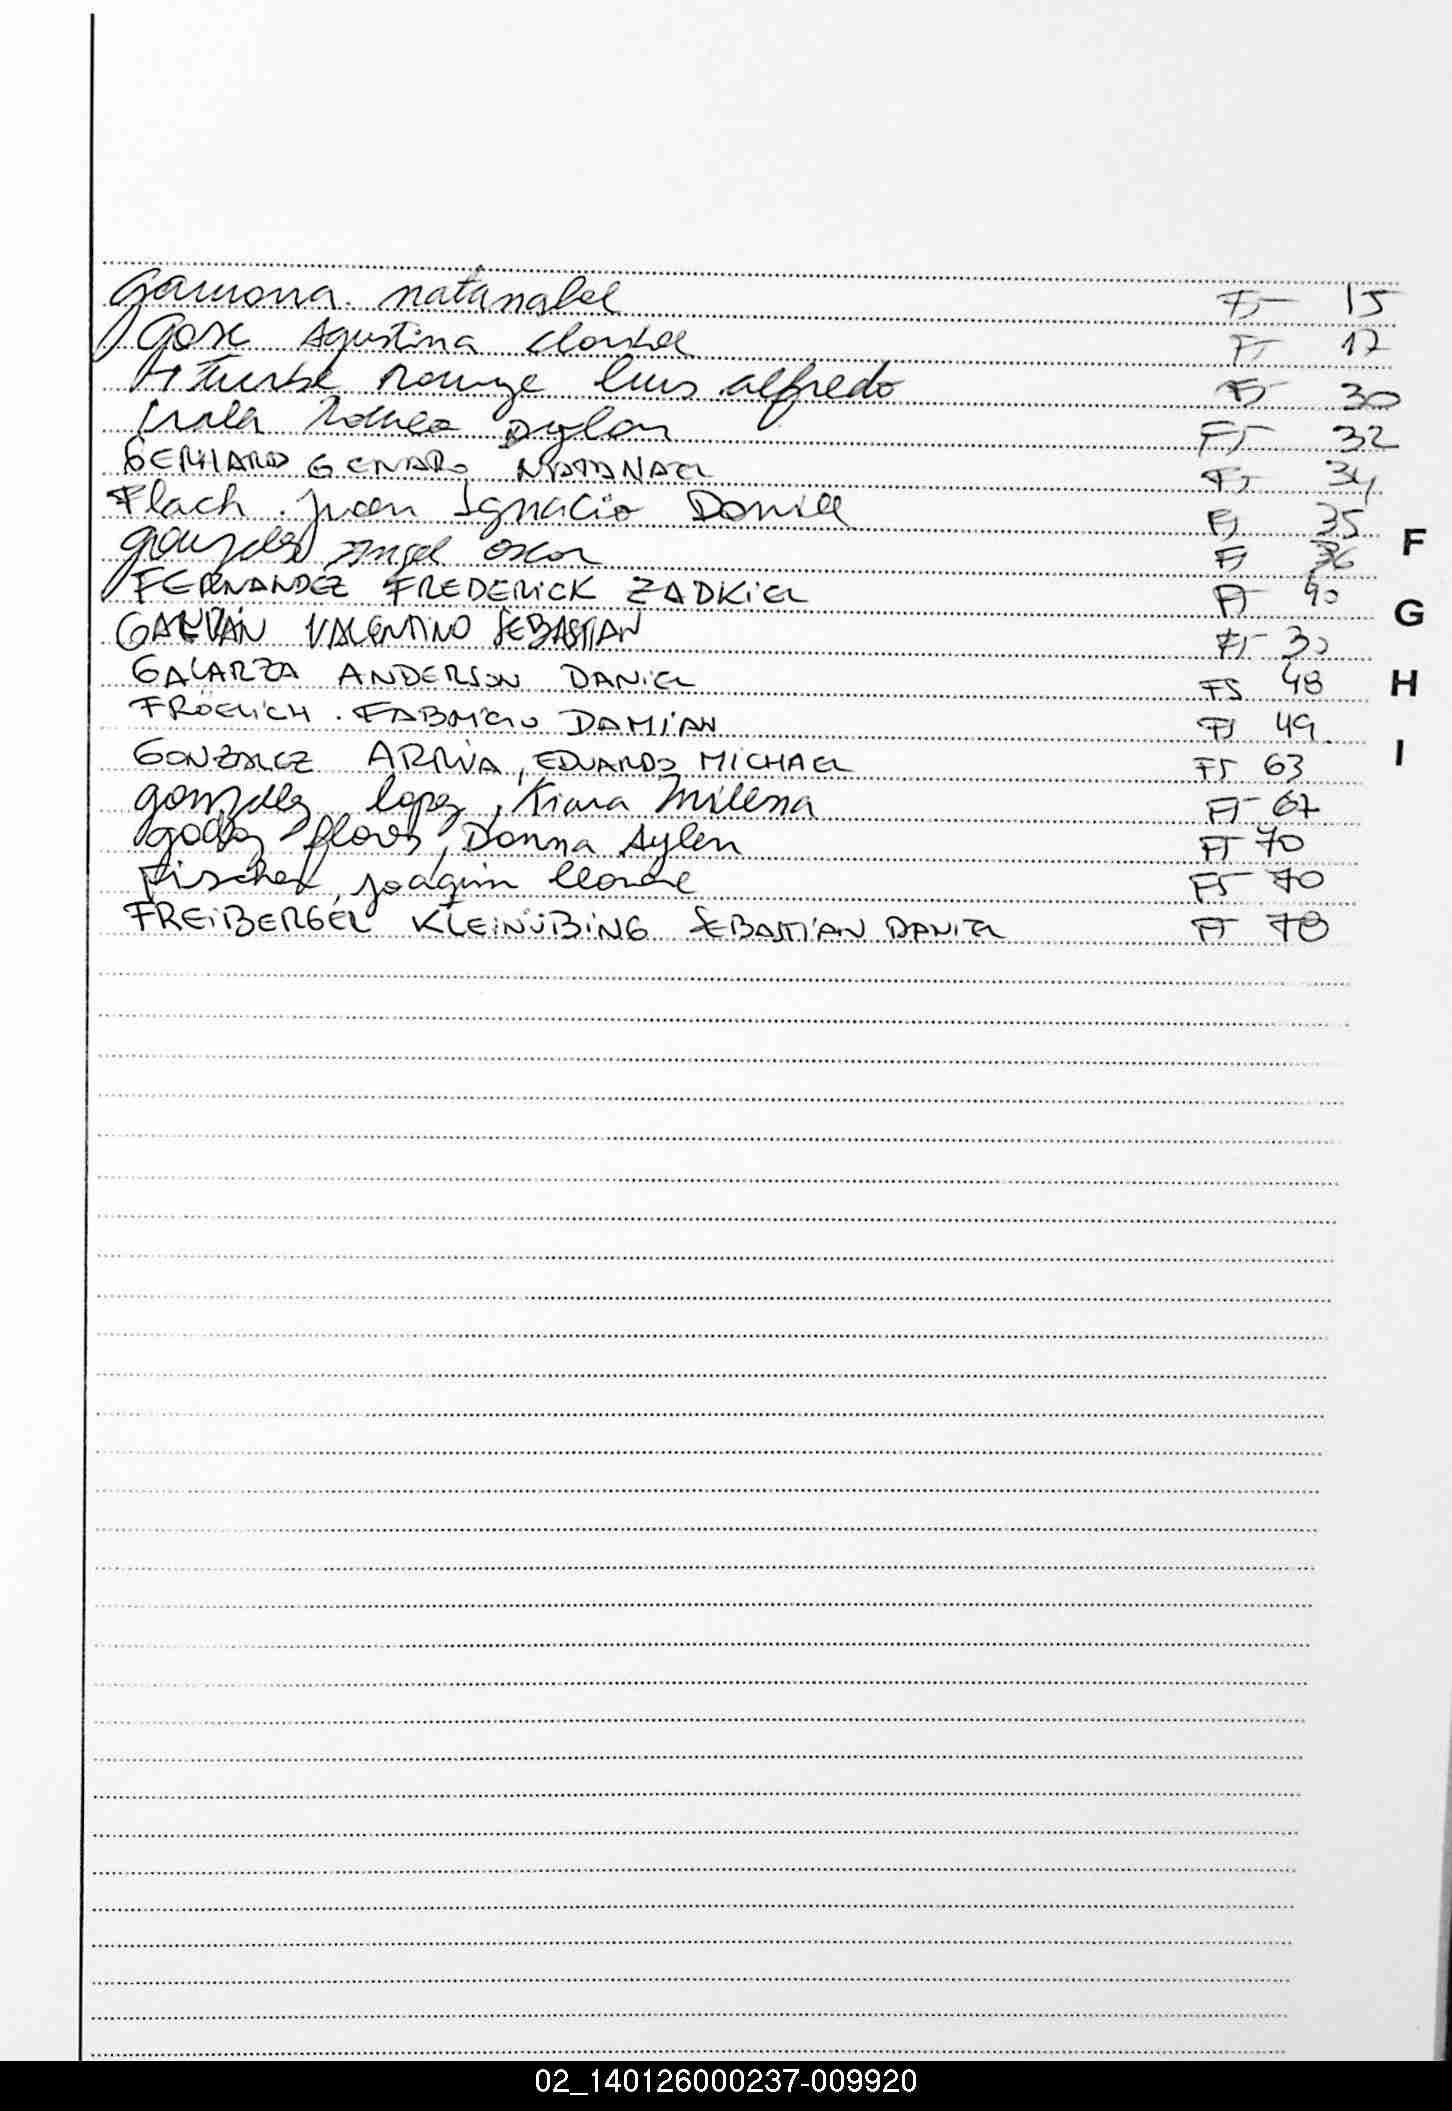 Gamona. natanabel FS 15
Gose Agustina FS 17
Iturbe luis alfredo FS 30
Irala Dylan FS 32
GERHARD GENARO NATANAEL FS 34
Flach. Juan Ignacio Daniel FS 35
gonzalez Angel Oscar FS 36
FERNANDEZ FREDERICK ZADKIEL FS 40
GALVÁN VALENTINO SEBASTIAN FS
GALARZA ANDERSON DANIEL FS 48
FRÖELICH. FABRICIO DAMIÁN FS 49.
GONZALEZ , EDUARDO MICHAEL FS 63
gonzalez lopez, Kiara Milena FS 67
godoy flores, Donna Aylen FS 70
Fischer, joaquin leonel FS 70
FREIBERGER KLEINÜBING SEBASTIÁN DANIEL FS 78
F
G
H
I
02_140126000237-009920